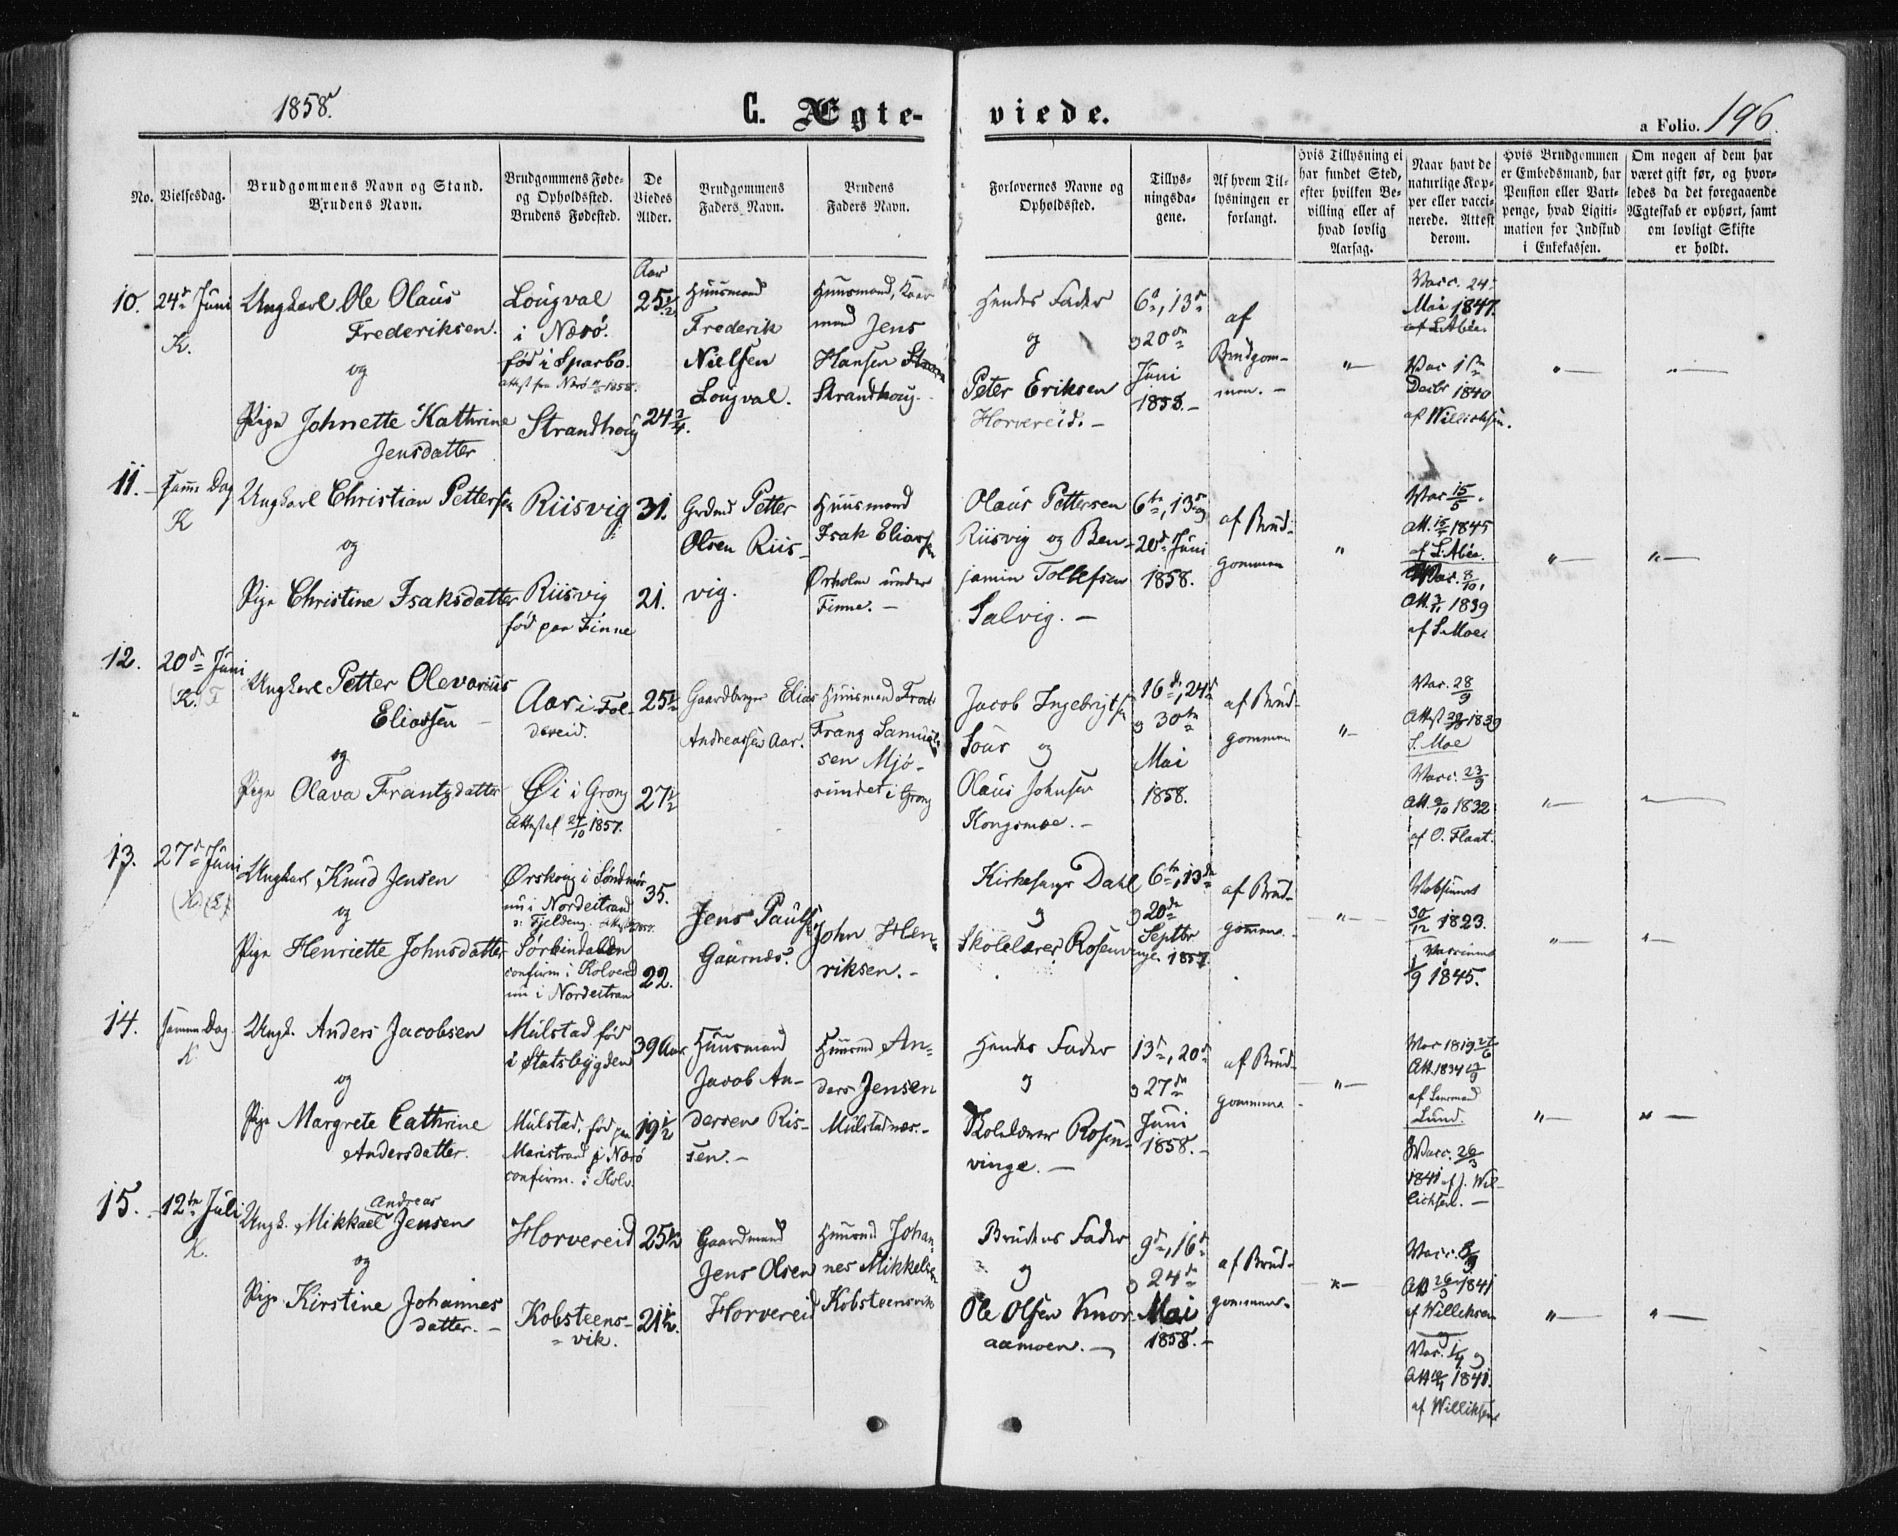 1858.
C. Ægteviede.
a Folio. 196.
No.
Vielsesdag.
Brudgommens Navn og Stand.
Brudens Navn.
Brudgommens Føde-
og Opholdssted.
Brudens Fødested.
De
Viedes
Alder.
Brudgommens
Faders Navn.
Brudens
Faders Navn.
Forlovernes Navne og
Opholdssted.
Tillys-
ningsda-
gene.
Af hvem Til-
lysningen er
forlangt.
Hvis Tillysning ei
har fundet Sted,
efter hvilken Be-
villing eller af
hvad lovlig
Aarsag.
Naar havt de
naturlige Kop-
per eller vacci-
nerede. Attest
derom.
Hvis Brudgommen
er Embedsmand, har
Pension eller Vart-
penge, hvad Ligiti-
mation for Indskud
i Enkekassen.
Om nogen af dem har
været gift før, og hvor-
ledes da det foregaaende
Ægteskab er ophørt, samt
om lovligt Skifte
er holdt.
10.
24de Juni
K.
Ungkarl Ole Olaus
Frederiksen.
og
Pige Johnette Kathrine
Jensdatter
Lougval
i Nærø.
fød i Sparbo.
Strandhoug
Aar
25 1/2
24 3/4.
Huusmand
Frederik
Nielsen
Lougval.
Huusmand,
mand Jens
Hansen
Strandhoug.
Hendes Fader
og
Peter Eriksen
Horvereid. –
6te, 13de
og 20de
Juni
1858. –
af
Brudgom-
men. –
"—
Vacc. 24.
Mai 1847.
af L. Abée.
Vac 1ste
Decbr 1840
af Willichsen.
"—
"—
11. –
samme Dag
K
Ungkarl Christian Pettersen
og
Pige Christine Isaksdatter
Riisvig
Riisvig
fød paa Finne
31.
21.
Grdmd Petter
Olsen Riis-
vig.
Huusmand
Isak Eliassen
Ørholm under
Finne. –
Olaus Pettersen
Riisvig og Ben-
jamin Tollefsen
Salvig. –
6te, 13de og
20de Juni
1858.
af Brud-
gommen
"
Vac 15/5.
Att. 15/5 1845
af L. Abée.
Vac. 8/10,
Att. 3/11 1839
af S. Moe.
"—
"—
12.
20de Juni
(K.)
Ungkarl Petter Olevarius
Eliassen –
og
Pige Olava Frantzdatter
Aar i Fol-
dereid.
Øi i Grong
Attest af 24/10 1857.
25 1/2
27 1/2
Gaardbruger Elias
Andreassen Aar.
Huusmand
Frang Samuel-
sen Mjø-
sundet i Grong
Jacob Ingebrigtsen
og
Olaus Johnsen
Kongsmoe. –
16de, 24de
og 30te
Mai
1858.
af Brud-
gommen
"–
Vac. 28/9
Attest 1839
S. Moe
Vacc. 23/9
Att. 9/10 1832
af O. Flaat.
"—
"—
13.
27de Juni
Ungkarl Knud Jensen
og
Pige Henriette Johnsdatter
Ørskoug i Søndmør
nu i Nordestrand
Sørbindalen
confirm i Kolvereid
nu i Nordestran
35.
22.
Jens Pauls
Gaurnæs.
John Hen-
riksen. –
Kirkesanger Dahl
og
Skolelærer Rosenvinge.
6te, 13de
og 20de
Septbr
1857
af Brud-
gommen. –
"—
30/12 1823.
Vaccineret
1/9 1845.
"—
"—
14.
samme Dag.
K
Ungk. Anders Jacobsen
og
Pige Margrete Cathrine
Andersdatter.
Mulstad fød
i Statsbygden
Mulstad, fød paa
Maristrand i Nærø
confirm. i Kolv.
39 Aar
19 1/2
Huusmand
Jacob An-
dersen Ris-
sen. –
Huusmd An-
ders Jensen
Mulstadnæs. –
Hendes Fader
og
Skolelærer Rosen-
vinge. –
13de, 20de
og 27de
Juni
1858. –
af Brud-
gommen –
"—
Vac 1819 27/6
Att. 1834
af Lensmand
Lund.
Vacc. 26/3
1841 af J. Wil-
lichsen. –
"—
" –
15. –
12te Juli
K.
Andreas
Ungk. Mikkael Jensen
og
Pige Kirstine Johannes
datter. –
Horvereid
Kobsteens-
vik.
25 1/2
21 1/2.
Gaardmand
Jens Olsen
Horvereid
Huusmd Johan-
nes Mikkelsen
Kobsteensvik
Brudens Fader
og
Ole Olsen Knor-
aamoen. –
9de, 16de
og 24de
Mai
1858. –
af Brud-
gommen –
"—
Vacc. 8/9
Att 26/3 1841
af Williksen
Vac. 1/4 og
Att 1841.
af Williksen
"—
"—